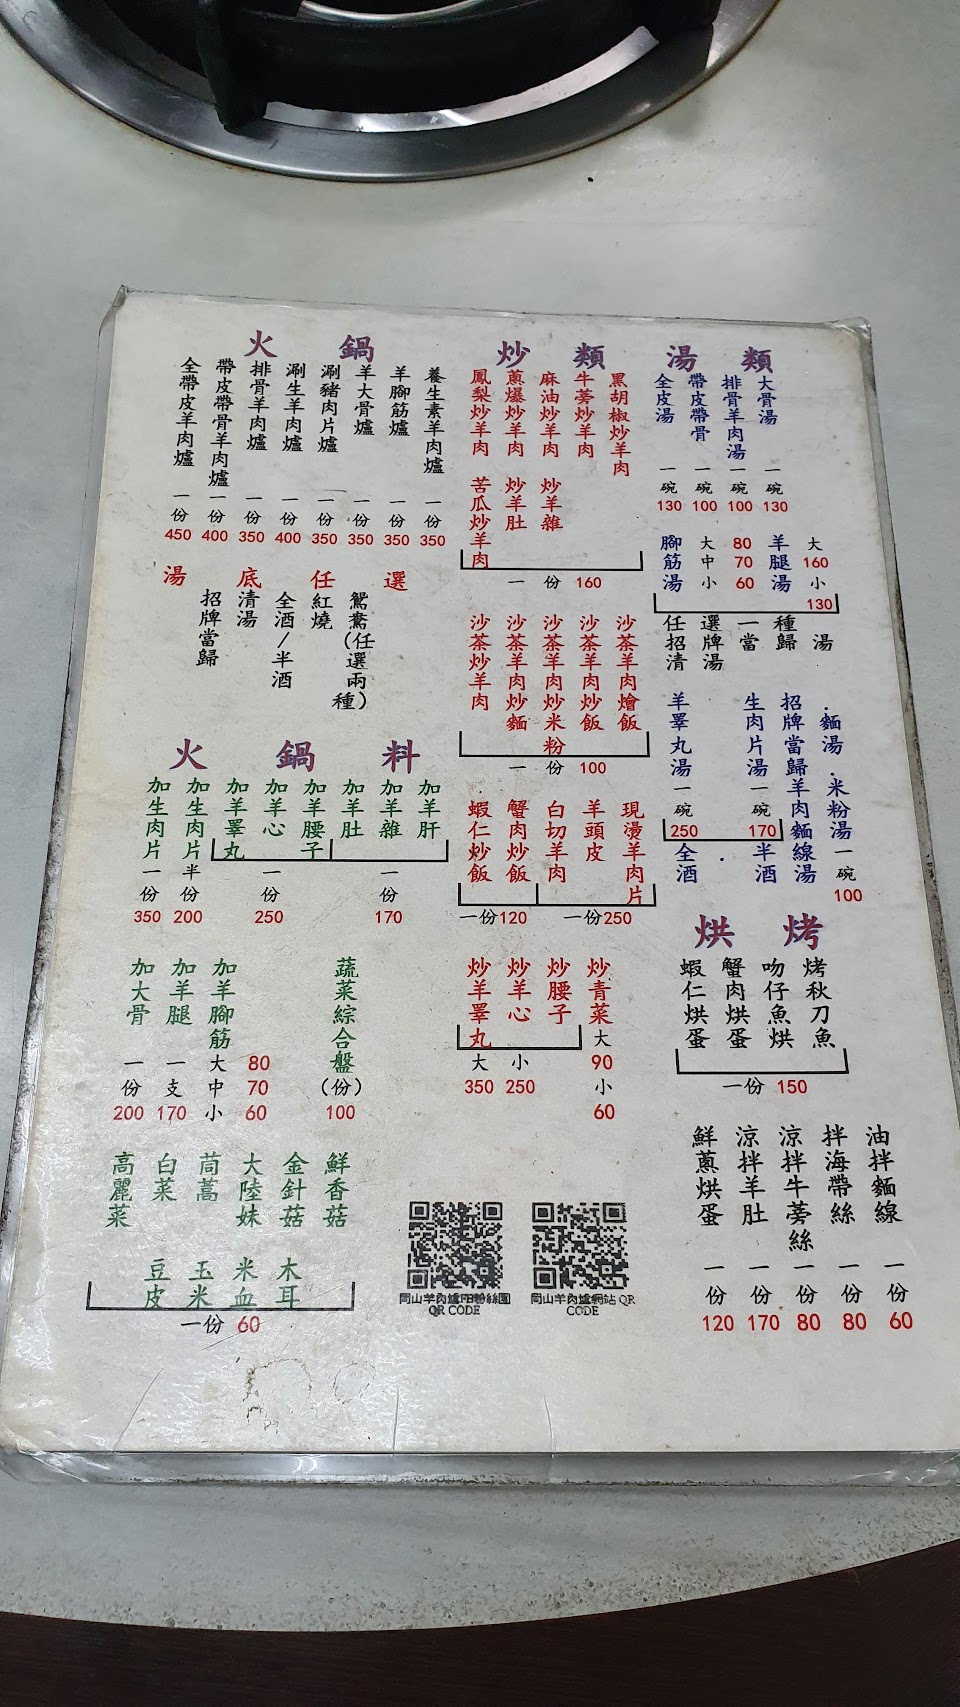 火鍋
全帶皮羊肉爐 一份 450
帶皮帶骨羊肉爐 一份 400
排骨羊肉爐 一份 350
涮生羊肉爐 一份 400
涮豬肉片爐 一份 350
羊大骨爐 一份 350
羊腳筋爐 一份 350
養生素羊肉爐 一份 350
湯底任選
招牌當歸
清湯
全酒/半酒
紅燒
鴛鴦(任選兩種)
火鍋料
加生肉片 一份 350
加生肉片 半份 200
加羊睪丸
加羊心
加羊腰子
一份 250
加羊肚
加羊雜
加羊肝
一份 170
加大骨 一份 200
加羊腿 一支 170
加羊腳筋 大 80 中 70 小 60
蔬菜綜合盤(份) 100
高麗菜
白菜
茼蒿
大陸妹
金針菇
鮮香菇
豆皮
玉米
米血
木耳
一份 60
炒類
鳳梨炒羊肉
蔥爆炒羊肉
麻油炒羊肉
牛蒡炒羊肉
黑胡椒炒羊肉
苦瓜炒羊肉
炒羊肚
炒羊雜
一份 160
沙茶炒羊肉
沙茶羊肉炒麵
沙茶羊肉炒米粉
沙茶羊肉炒飯
沙茶羊肉燴飯
一份 100
蝦仁炒飯
蟹肉炒飯
一份120
白切羊肉
羊頭皮
現燙羊肉片
一份250
炒羊睪丸
炒羊心
炒腰子
大 350 小 250
炒青菜 大 90 小 60
岡山羊肉爐FB粉絲團 QR CODE
岡山羊肉爐網站 QR CODE
湯類
全皮湯 一碗 130
帶皮帶骨 一碗 100
排骨羊肉湯 一碗 100
大骨湯 一碗 130
腳筋湯 大 80 中 70 小 60
羊腿湯 大 160 小 130
任選一種湯
招牌當歸
清湯
羊睪丸湯 一碗 250
生肉片湯 一碗 170
全酒.半酒
招牌當歸羊肉麵線湯
.麵湯.米粉湯 一碗 100
烘烤
蝦仁烘蛋
蟹肉烘蛋
吻仔魚烘
烤秋刀魚
一份 150
鮮蔥烘蛋 一份 120
涼拌羊肚 一份 170
涼拌牛蒡絲 一份 80
拌海帶絲 一份 80
油拌麵線 一份 60